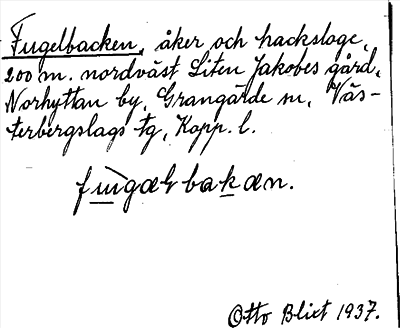 Fugelbacken, åker och hacksloge,
200 m. nordväst Liten Jakobes gård,
Norhyttan by, Grangärde sn, Väs-
terbergslags tg, Kopp. l.
Otto Blixt 1937.